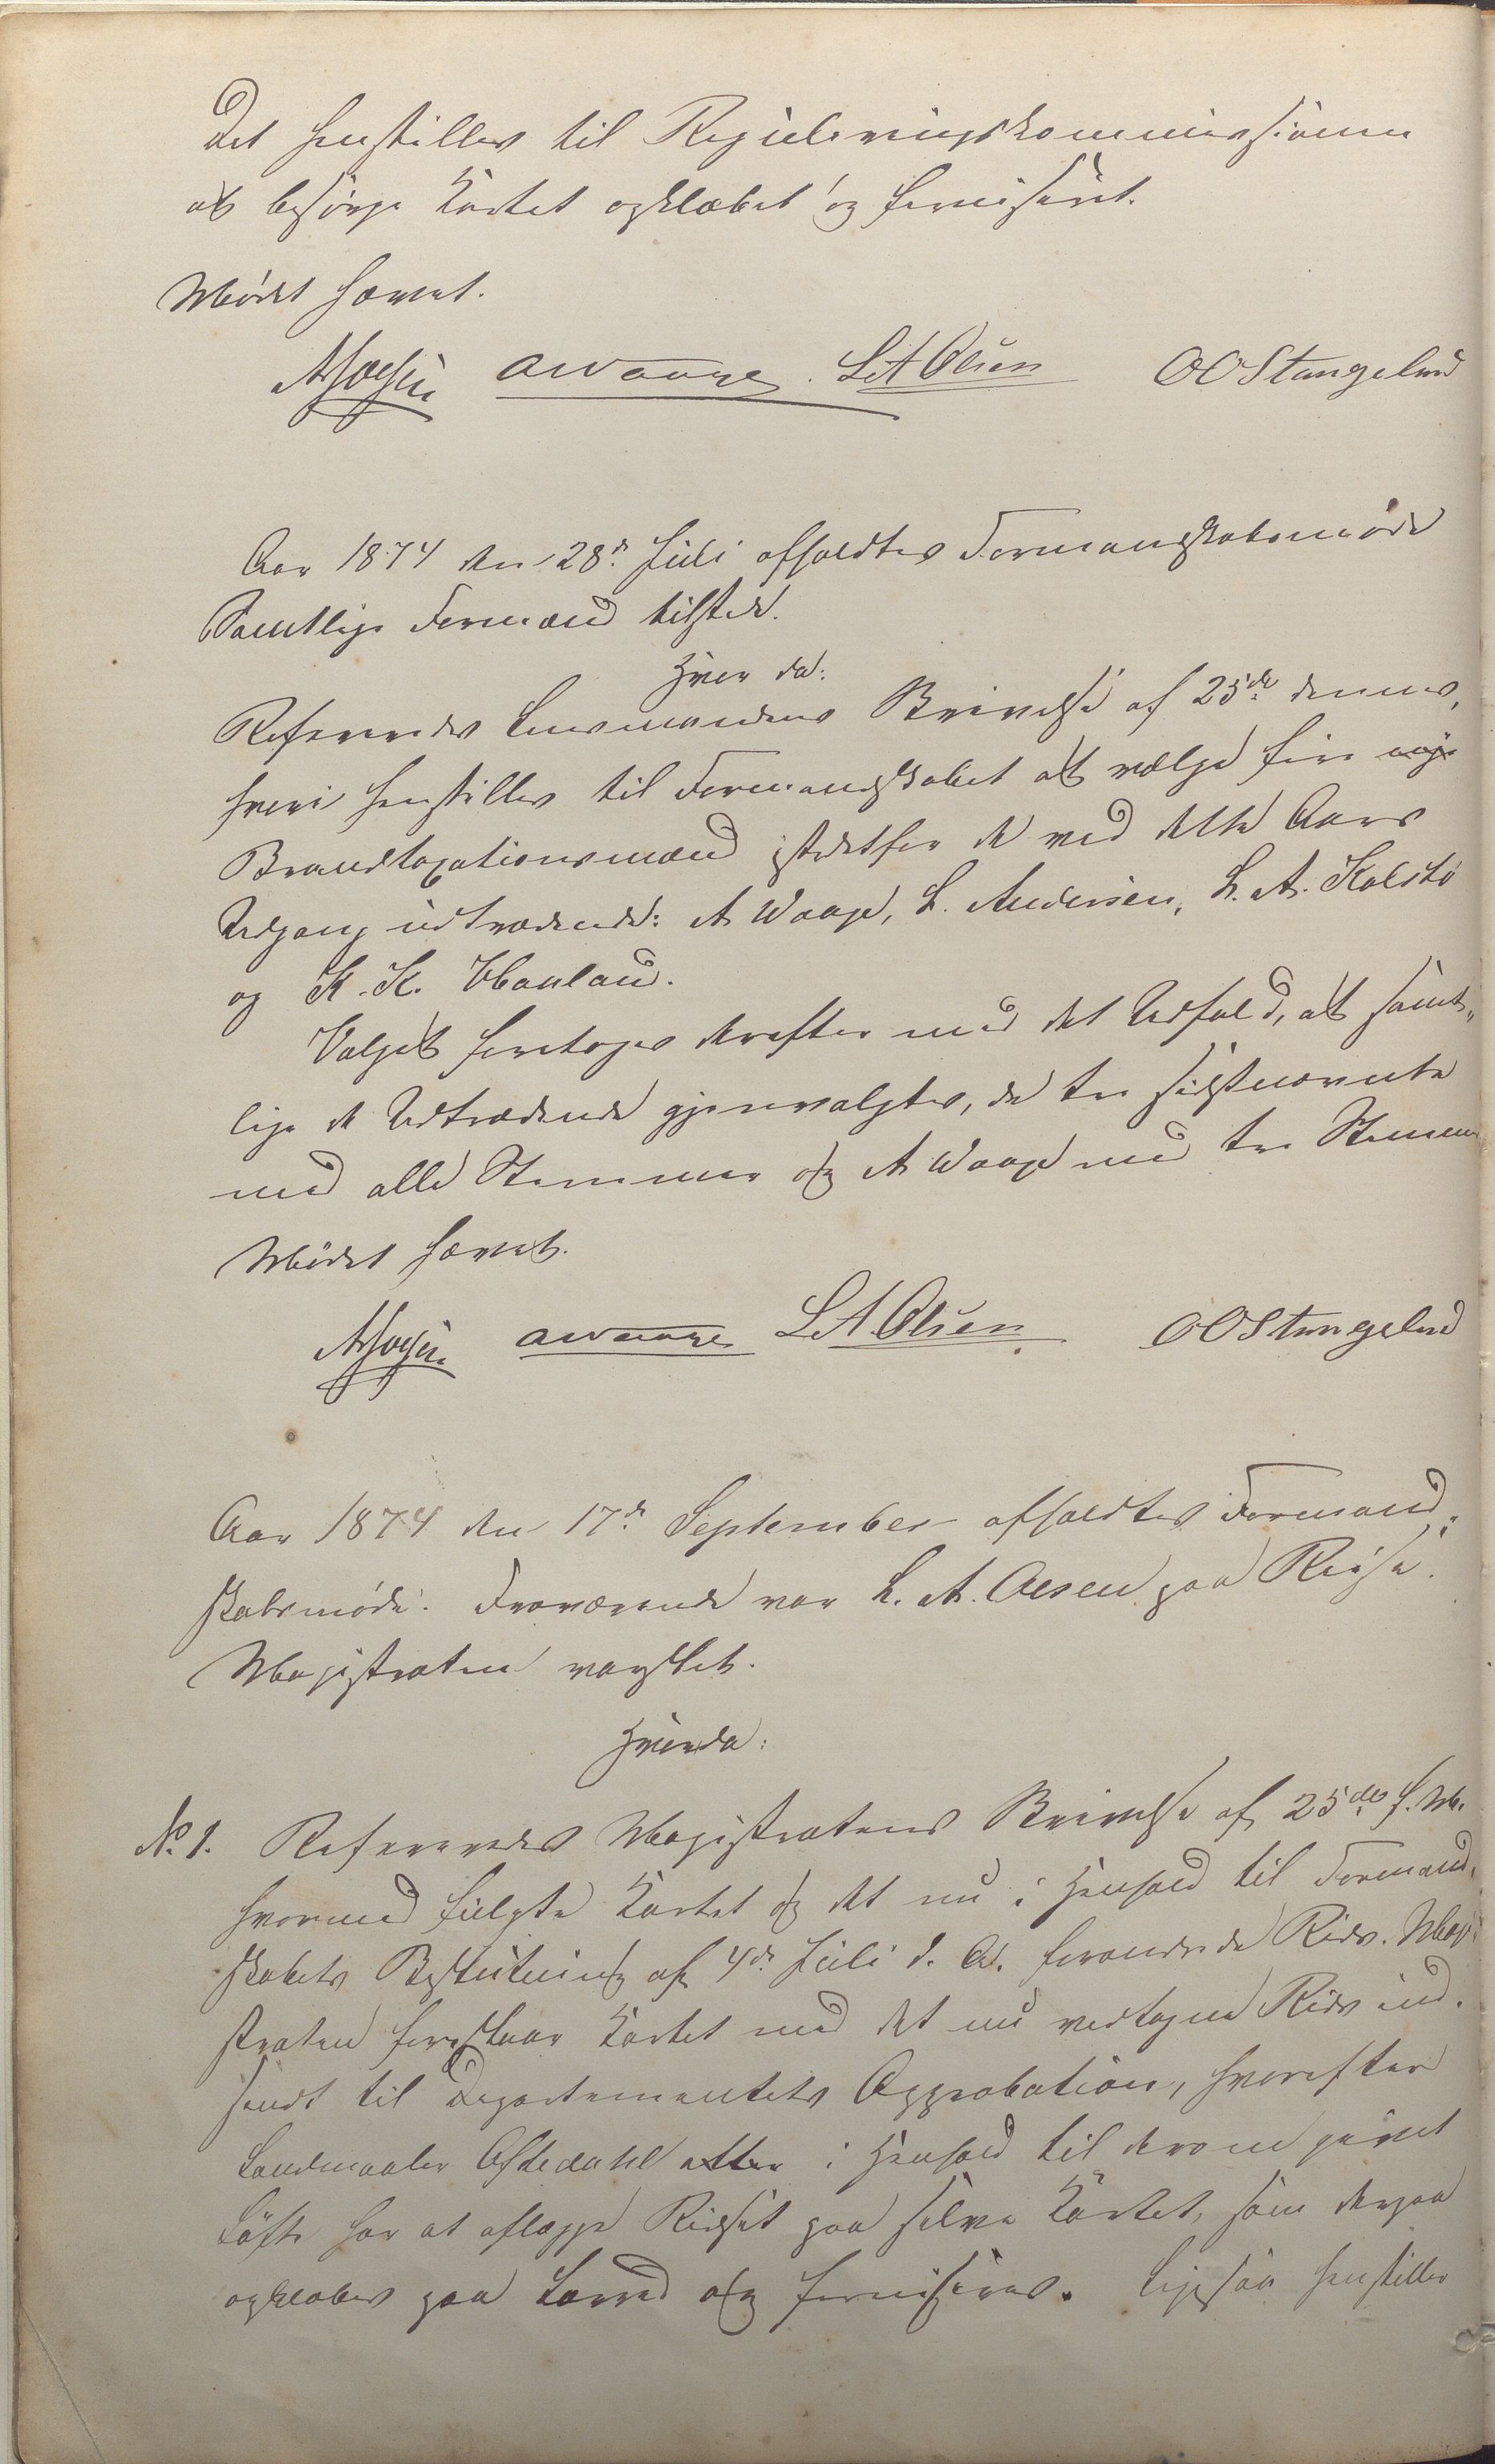 Det henstilles til Reguleringskommissionen
at besørge Kartet opklæbet og ferniseret.
Mødet hævet.
AWaage LAOlsen OOStangeland
Aar 1874 den 28de Juli afholdtes Formandskabsmøde
Samtlige Formænd tilstede.
Hvor da:
Refereredes Lensmandens Skrivelse af 25de dennes,
hvori henstilles til Formandskabet at vælge fire nye
Brandtaxationsmænd istedetfor de ved dette Aars
Udgang udtrædende: A Waage, L. Andersen, L. A. Kolstø
og K. K. Hauland.
Valget foretoges derefter med det Udfald, at samt-
lige de Udtrædende gjenvalgtes, de tre sidstnævnte
med alle Stemmer og A Waage med tre Stemmer
Mødet hævet.
AWaage LAOlsen. OOStangeland
Aar 1874 den 17de September afholdtes Formand-
skabsmøde. Fraværende var L. A. Olsen paa Reise.
Magistraten varslet.
Hvorda:
No. 1. Refereredes Magistratens Skrivelse af 25de f. M.
hvormed fulgte Kartet og det nu i Henhold til Formand-
skabets Beslutning af 4de Juli d. A. forandrede Rids. Magi-
straten foreslaar Kartet med det nu vedtagne Rids ind-
sendt til Departementets Approbation, hvorefter
Landmaaler Oftedahl atter i Henhold til derom givet
Løfte har at aflægge Ridset paa selve Kartet, som derpaa
opklæbes paa Lærred og ferniseres. Ligesaa henstiller